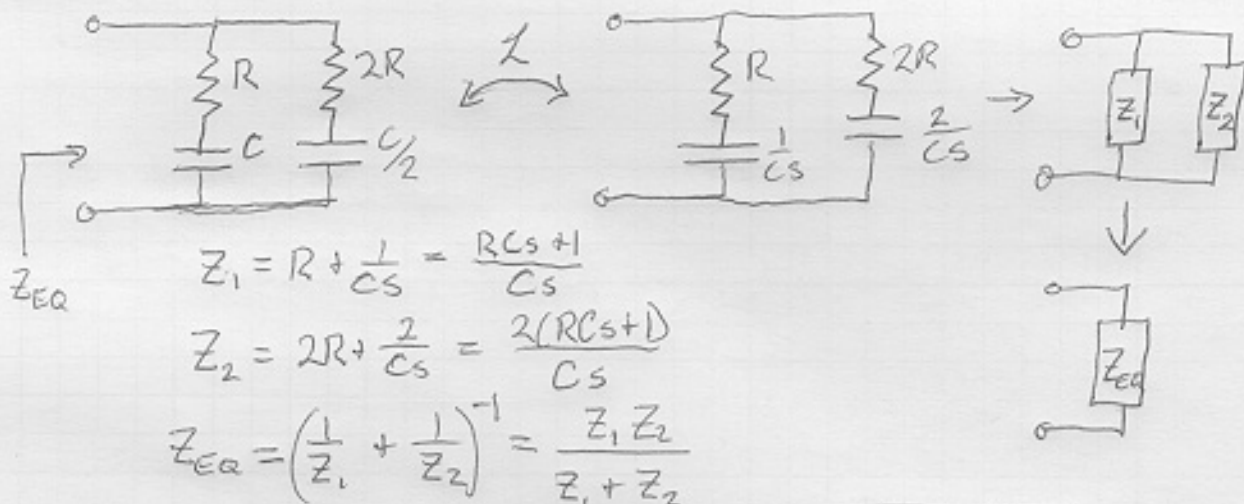 R
2R
C
C/2
Z_EQ
ℒ
R
2R
1/Cs
2/Cs
Z₁
Z₂
Z_EQ
Z₁ = R + 1/Cs = (RCs+1)/Cs
Z₂ = 2R + 2/Cs = 2(RCs+1)/Cs
Z_EQ = (1/Z₁ + 1/Z₂)⁻¹ = Z₁ Z₂/(Z₁ + Z₂)